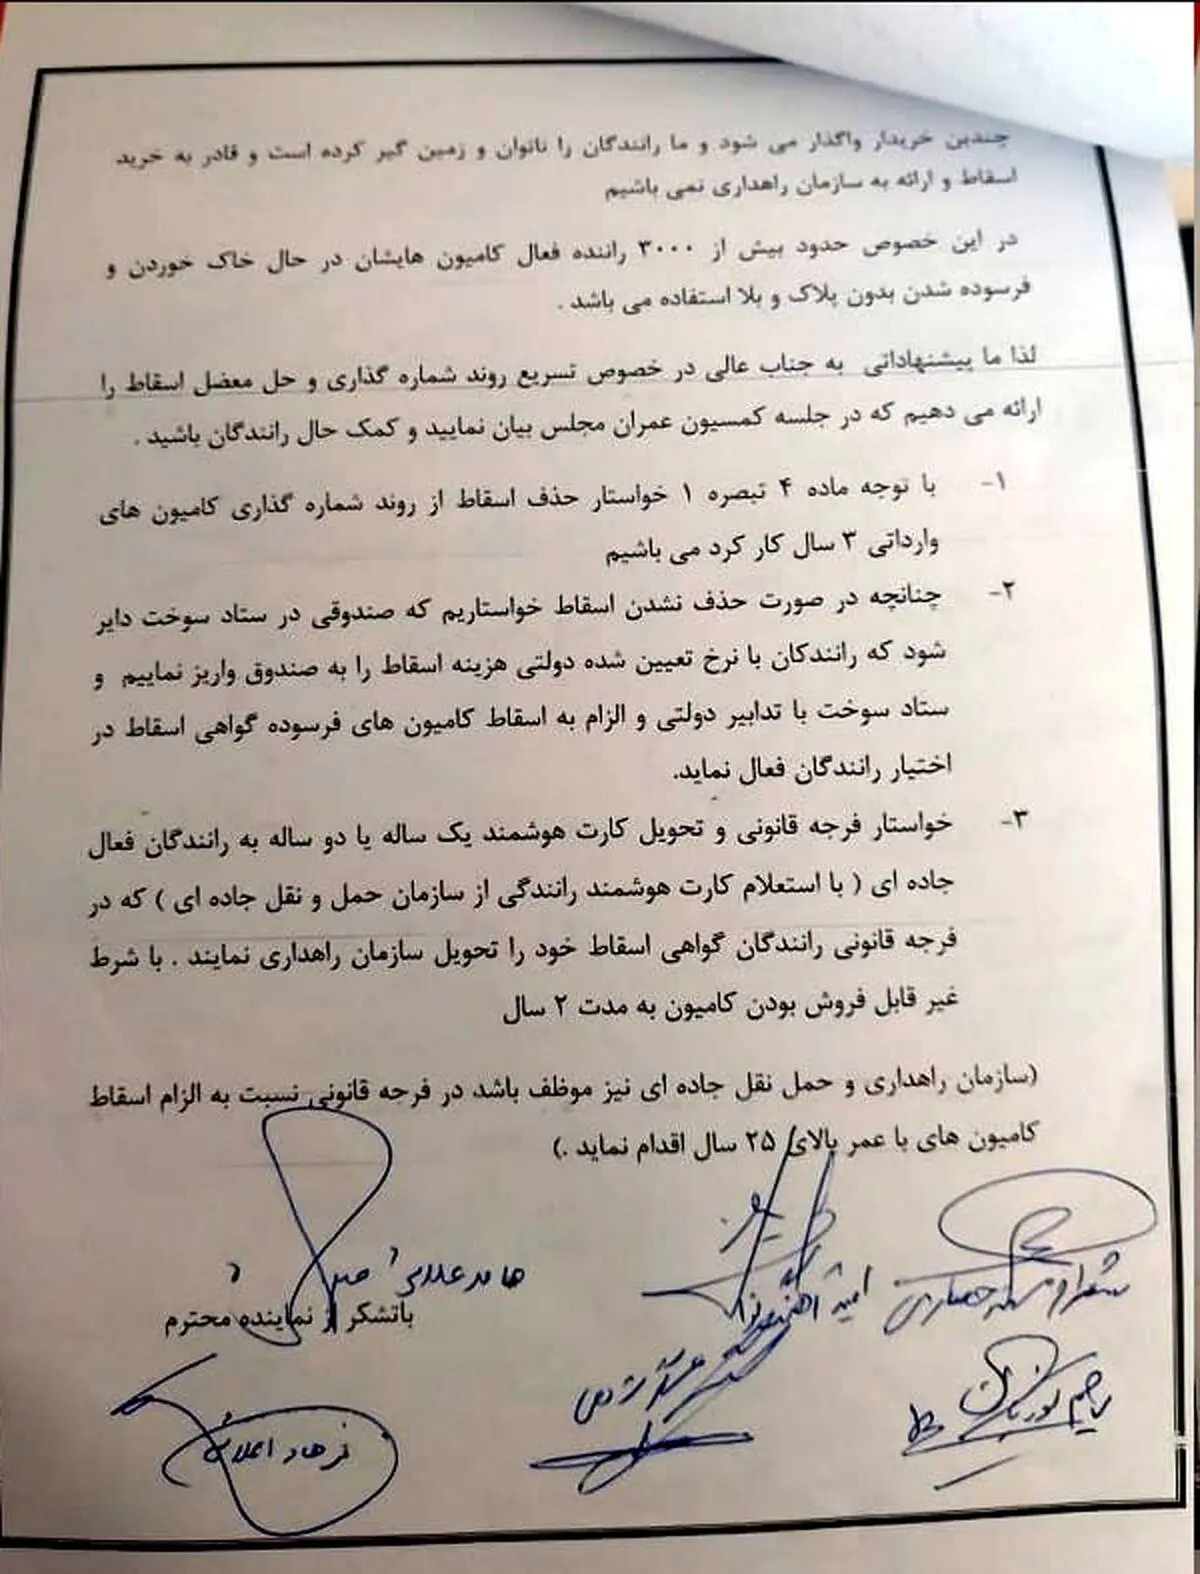 چندین خریدار واگذار می شود و ما رانندگان را ناتوان و زمین گیر کرده است و قادر به خرید
اسقاط و ارائه به سازمان راهداری نمی باشیم
در این خصوص حدود بیش از ۳۰۰۰ راننده فعال کامیون هایشان در حال خاک خوردن و
فرسوده شدن بدون پلاک و بلا استفاده می باشد .
لذا ما پیشنهاداتی به جناب عالی در خصوص تسریع روند شماره گذاری و حل معضل اسقاط را
ارائه می دهیم که در جلسه کمسیون عمران مجلس بیان نمایید و کمک حال رانندگان باشید .
۱- با توجه ماده ۴ تبصره ۱ خواستار حذف اسقاط از روند شماره گذاری کامیون های
وارداتی ۳ سال کار کرد می باشیم
۲- چنانچه در صورت حذف نشدن اسقاط خواستاریم که صندوقی در ستاد سوخت دایر
شود که رانندکان با نرخ تعیین شده دولتی هزینه اسقاط را به صندوق واریز نماییم و
ستاد سوخت با تدابیر دولتی و الزام به اسقاط کامیون های فرسوده گواهی اسقاط در
اختیار رانندگان فعال نماید.
۳- خواستار فرجه قانونی و تحویل کارت هوشمند یک ساله یا دو ساله به رانندگان فعال
جاده ای ( با استعلام کارت هوشمند رانندگی از سازمان حمل و نقل جاده ای ) که در
فرجه قانونی رانندگان گواهی اسقاط خود را تحویل سازمان راهداری نمایند . با شرط
غیر قابل فروش بودن کامیون به مدت ۲ سال
(سازمان راهداری و حمل نقل جاده ای نیز موظف باشد در فرجه قانونی نسبت به الزام اسقاط
کامیون های با عمر بالای ۲۵ سال اقدام نماید .)
حامد علائی
باتشکر از نماینده محترم
فرهاد